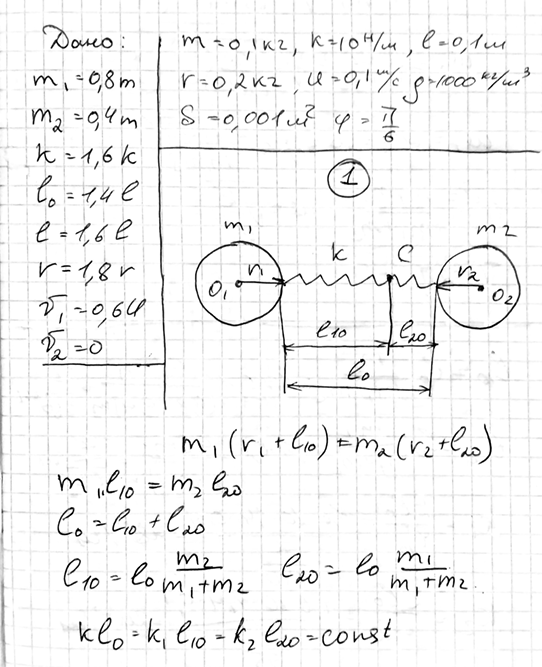 Дано:
m₁=0,8m
m₂=0,4m
k=1,6k
l₀=1,4l
l=1,6l
r=1,8r
v̄₁=0,6u
v̄₂=0
m=0,1кг, k=10 н/м, l=0,1м
r=0,2кг, u=0,1 м/с ρ=1000 кг/м³
S=0,001м² φ=π/6
1
m₁ m₂
k C
O₁ r₁ r₂ O₂
l₁₀ l₂₀
l₀
m₁(r₁+l₁₀)=m₂(r₂+l₂₀)
m₁l₁₀=m₂l₂₀
l₀=l₁₀+l₂₀
l₁₀=l₀ m₂/(m₁+m₂) l₂₀=l₀ m₁/(m₁+m₂)
kl₀=k₁l₁₀=k₂l₂₀=const